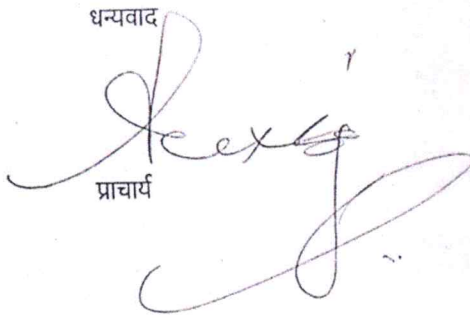 धन्यवाद
प्राचार्य